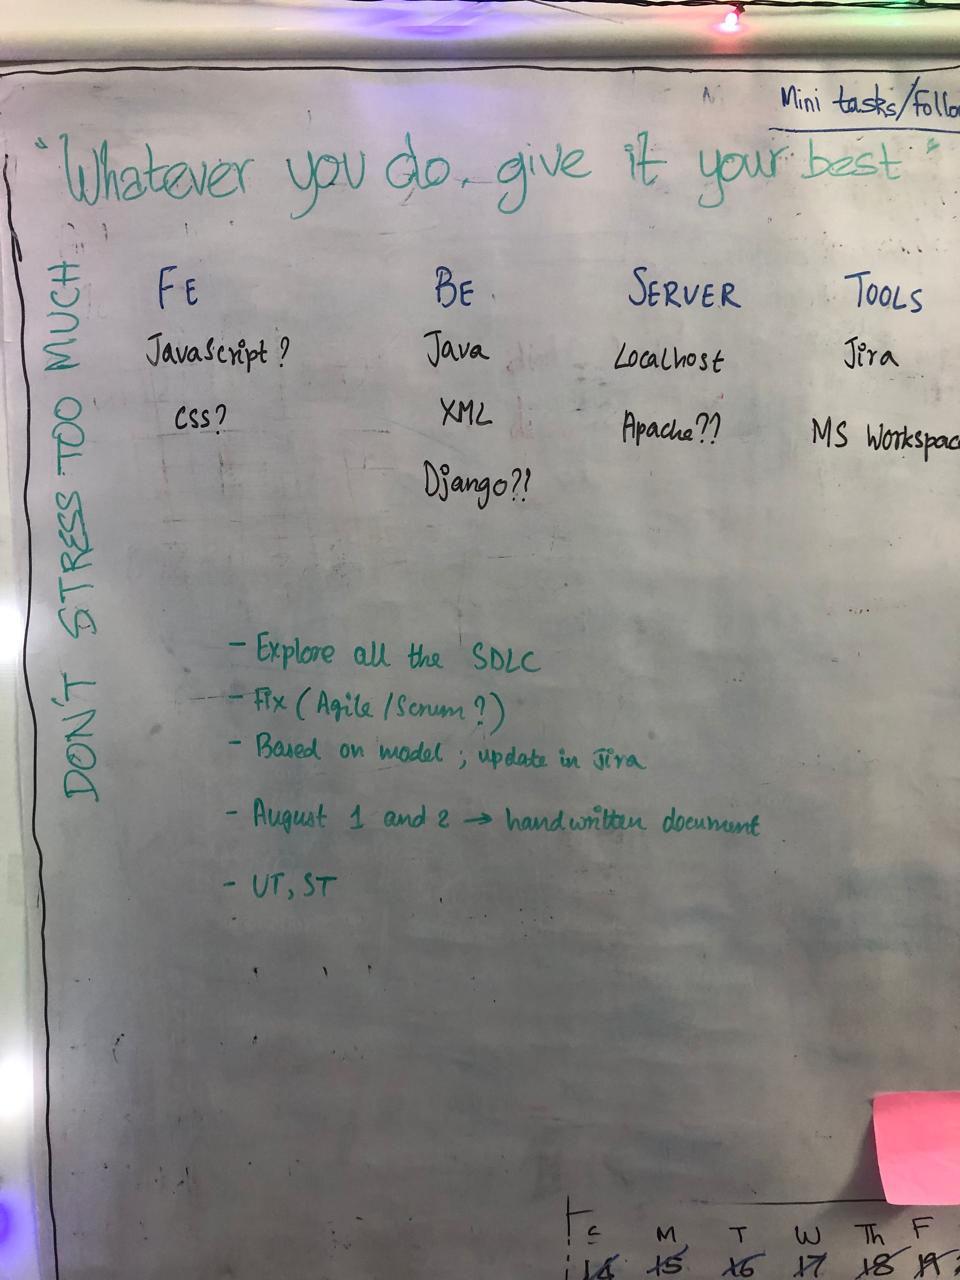 Mini tasks/Follo
"Whatever you do, give it your best"
DON'T STRESS TOO MUCH
FE BE SERVER TOOLS
JavaScript? Java Localhost Jira
CSS? XML Apache?? MS Workspac
Django??
- Explore all the SDLC
- Fix (Agile/Scrum?)
- Based on model; update in Jira
- August 1 and 2 → handwritten document
- UT, ST
M T W Th F
14 15 16 17 18 19